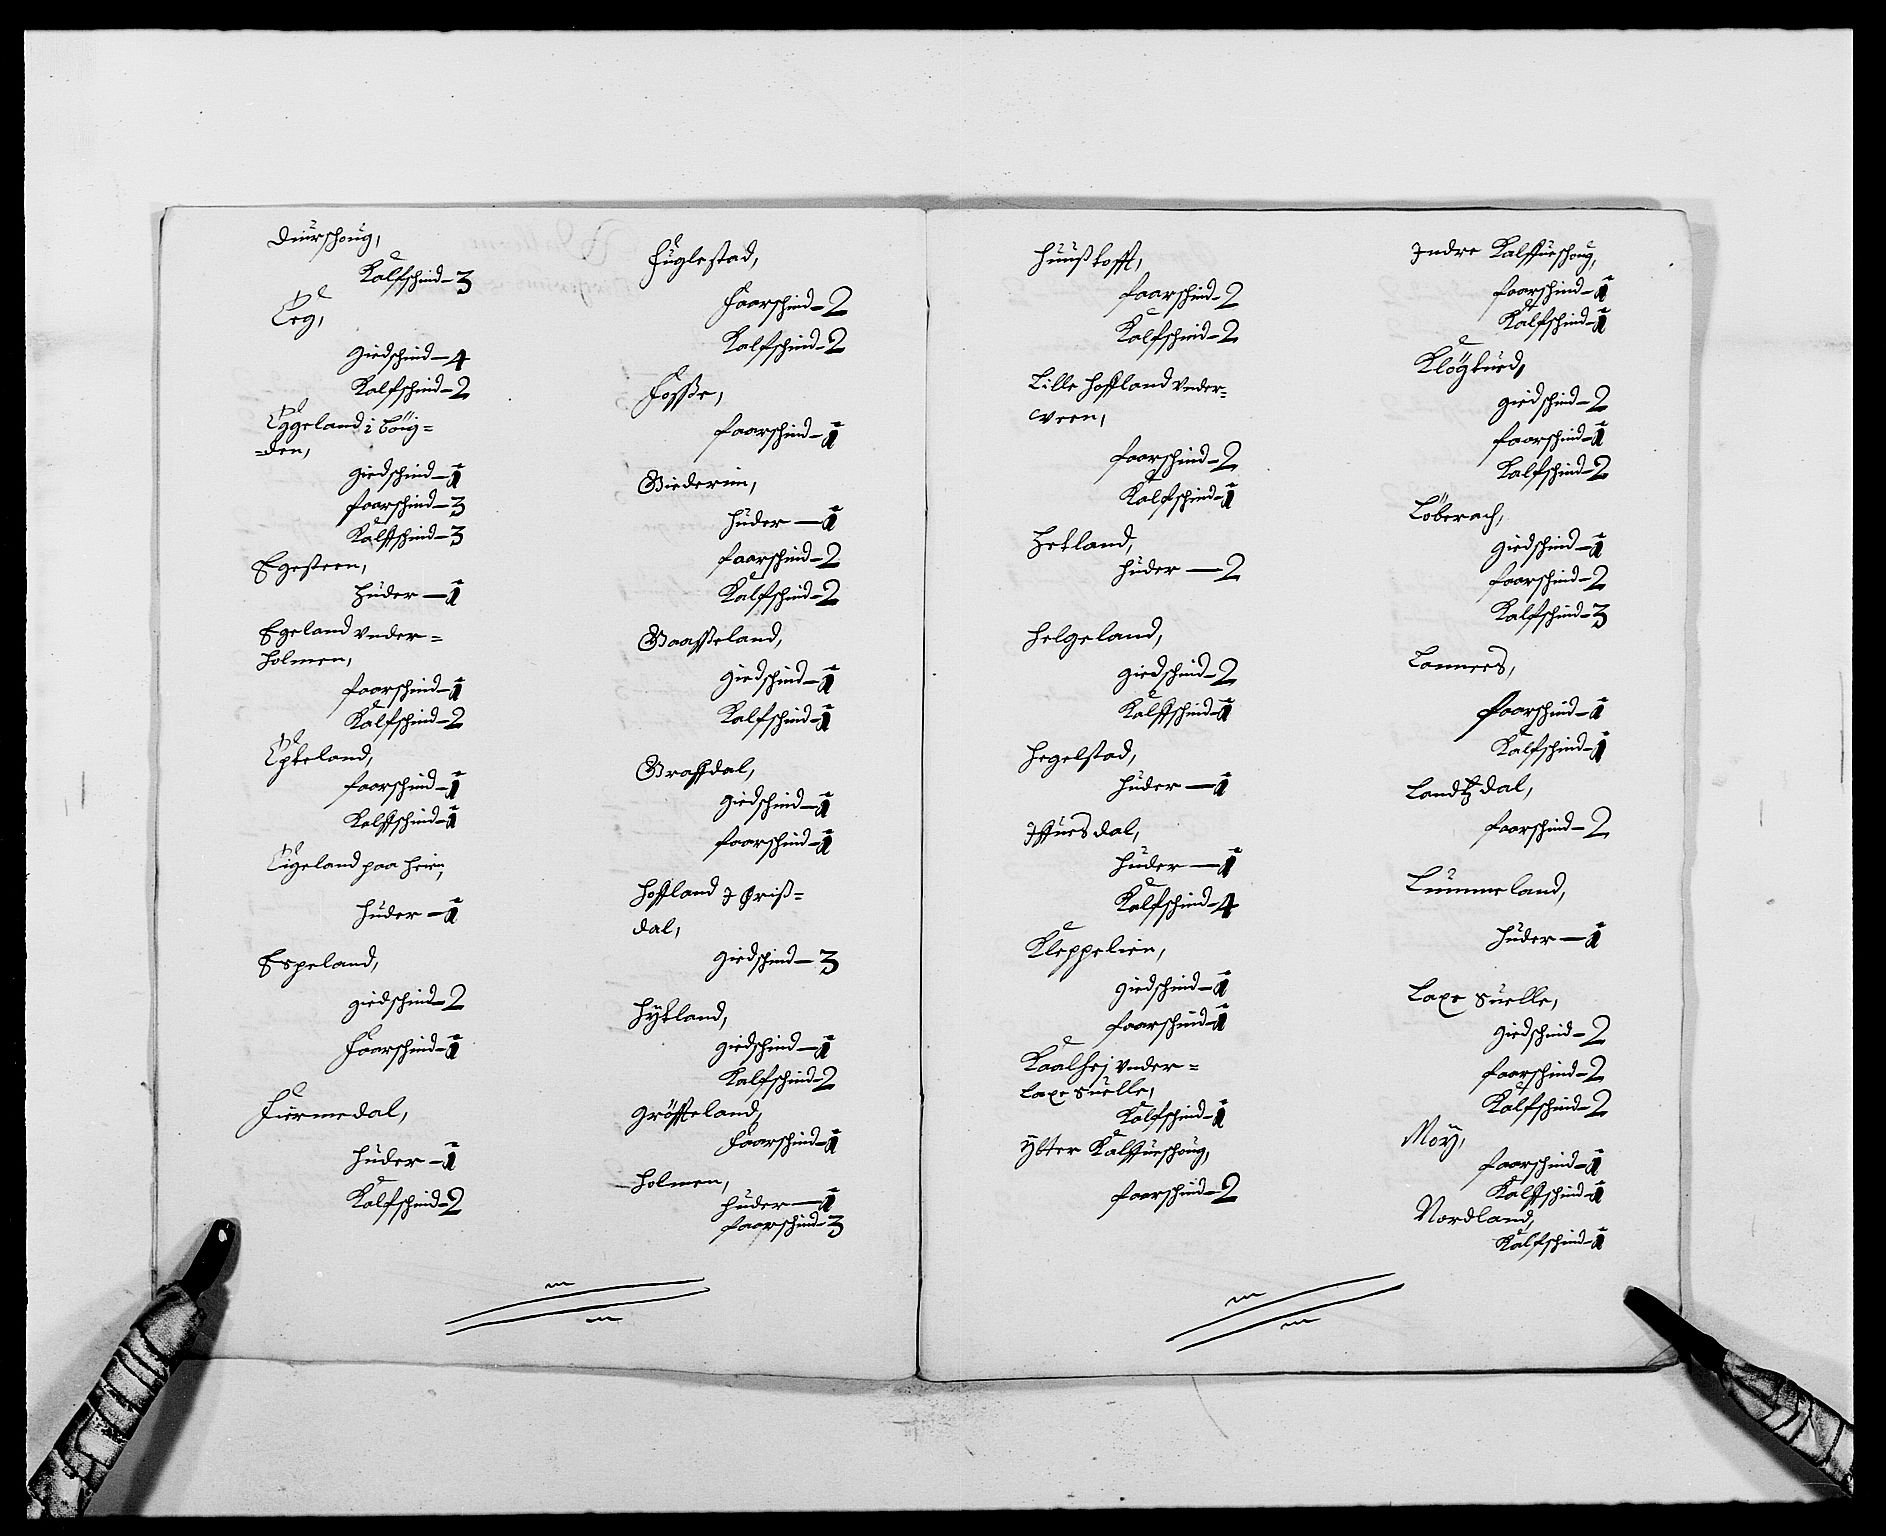 Diurschoug,
Kalfschind - 3
Eeg,
Giedschind - 4
Kalfschind - 2
Eggeland i böig=
=den,
Giedschind - 1
faarschind - 3
Kalffschind - 3
Egesteen,
Huder - 1
Egeland vnder=
holmen,
faarschind - 1
Kalfschind - 2
Epteland,
faarschind - 1
Kalffschind - 1
Eigeland paa heien,
huder - 1
Espeland,
giedschind - 2
Faarschind - 1
Furmedal,
huder - 1
Kalfschind - 2
Fuglestad,
Faarschind - 2
Kalfschind - 2
Fosse,
faarschind - 1
Giederim,
huder - 1
faarschind - 2
Kalfschind - 2
Gaasseland,
giedschind - 1
Kalfschind - 1
Graffdal,
giedschind - 1
faarschind - 1
Hoffland I Øriß=
dal,
giedschind - 3
Hytland,
giedschind - 1
Kalfschind - 2
Gröffteland,
Faarschind - 1
Holmen,
huder - 1
faarschind - 3
Huußtofft,
faarschind - 2
Kalfschind - 2
Lille Hoffland vnder=
Sveen,
faarschind - 2
Kalfschind - 1
Hetland,
huder - 2
Helgeland,
giedschind - 2
Kalffschind - 1
Hegelstad,
huder - 1
Iffuersdal,
huder - 1
Kalfschind - 4
Kleppelien,
giedschind - 1
faarschind - 1
Kaalhej vnder=
Laxesuelle,
Kalfschind - 1
Ytter Kalffueschoug,
faarschind - 2
Indre Kalffueschoug,
faarschind - 1
Kalfschind - 1
Klögtued,
giedschind - 2
faarschind - 1
Kalfschind - 2
Löberach,
giedschind - 1
faarschind - 2
Kalfschind - 3
Lonnees,
faarschind - 1
Kalfschind - 1
Landtzdal,
faarschind - 2
Lummeland,
huder - 1
Laxe Suelle,
giedschind - 2
faarschind - 2
Kalfschind - 2
Moÿ,
faarschind - 1
Kalffschind - 1
Nordland,
Kalfschind - 1